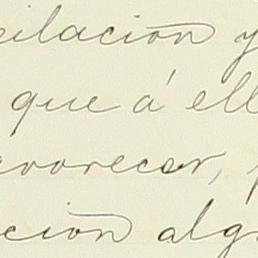 cilación y
que á ell
avorecer,
ción alg